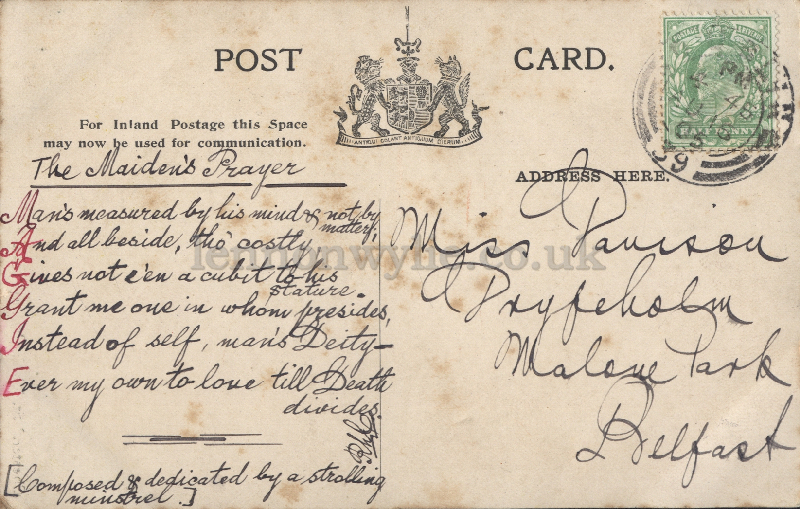 POST CARD.
For Inland Postage this Space
may now be used for communication.
ADDRESS HERE.
POSTAGE
HALFPENNY
39
The Maiden's Prayer
Man's measured by his mind & not by
matter;
And all beside, tho' costly,
Gives not e'en a cubit to his
stature
Grant me one in whom presides,
Instead of self, man's Deity—
Ever my own to love till Death
divides.
[Composed & dedicated by a strolling
minstrel.]
Miss
Malone Park
Belfast
lennonwylie.co.uk